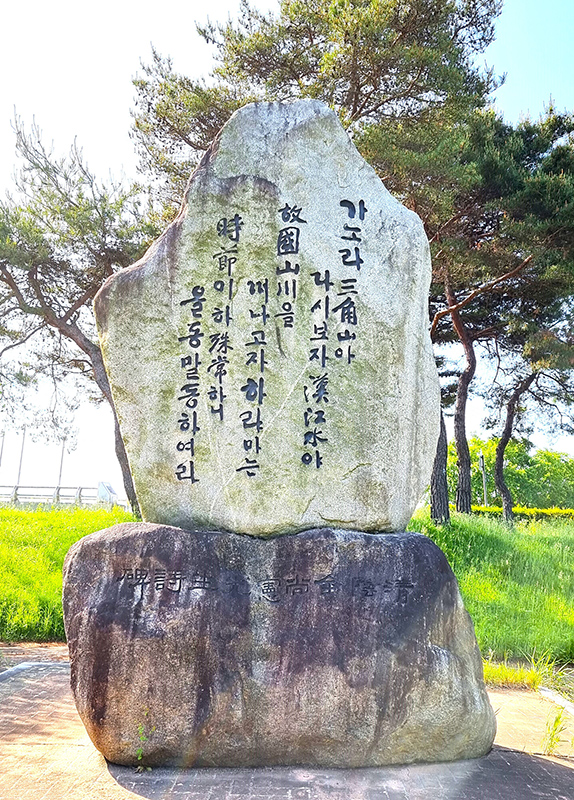 가노라 三角山아
다시보자 漢江水야
故國山川을
떠나고자 하랴마는
時節이 하 殊常하니
올동말동하여라
淸陰金尙憲先生詩碑